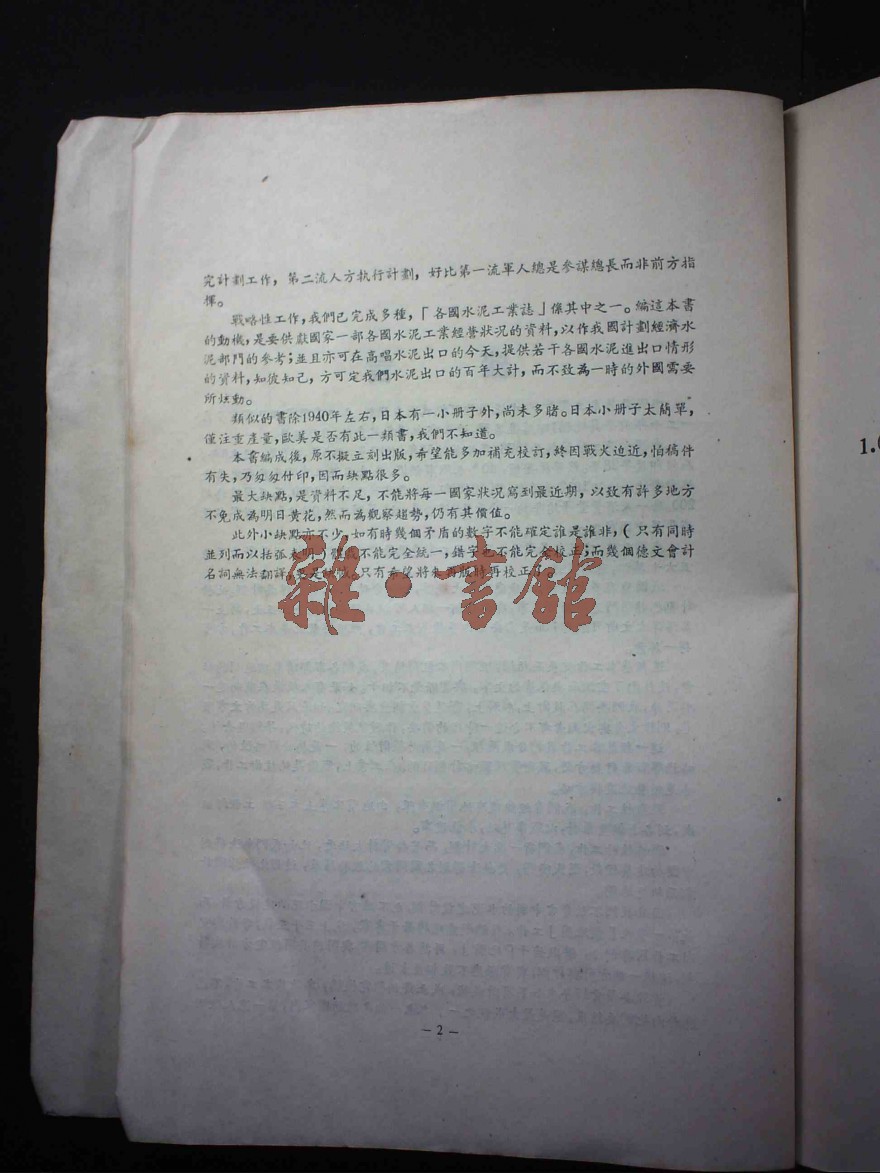 究計劃工作，第二流人方執行計劃，好比第一流軍人總是參謀總長而非前方指
揮。
戰略性工作，我們已完成多種，「各國水泥工業誌」係其中之一。編這本書
的動機，是要供獻國家一部各國水泥工業經營狀况的資料，以作我國計劃經濟水
泥部門的參考；並且亦可在高唱水泥出口的今天，提供若干各國水泥進出口情形
的資料，知彼知己，方可定我們水泥出口的百年大計，而不致為一時的外國需要
所炫動。
類似的書除1940年左右，日本有一小册子外，尚未多睹。日本小册子太簡單，
僅注重產量，歐美是否有此一類書，我們不知道。
本書編成後，原不擬立刻出版，希望能多加補充校訂，終因戰火迫近，怕稿件
有失，乃匆匆付印，因而缺點很多。
最大缺點，是資料不足，不能將每一國家狀况寫到最近期，以致有許多地方
不免成為明日黄花，然而為觀察趨勢，仍有其價值。
此外小缺點亦不少，如有時幾個矛盾的數字不能確定誰是誰非，（只有同時
並列而以括弧表明）體裁不能完全統一，錯字也不能完全校正；而幾個德文會計
名詞無法翻譯，只有希望將來再版時再校正
雜·書館
－2－
1.